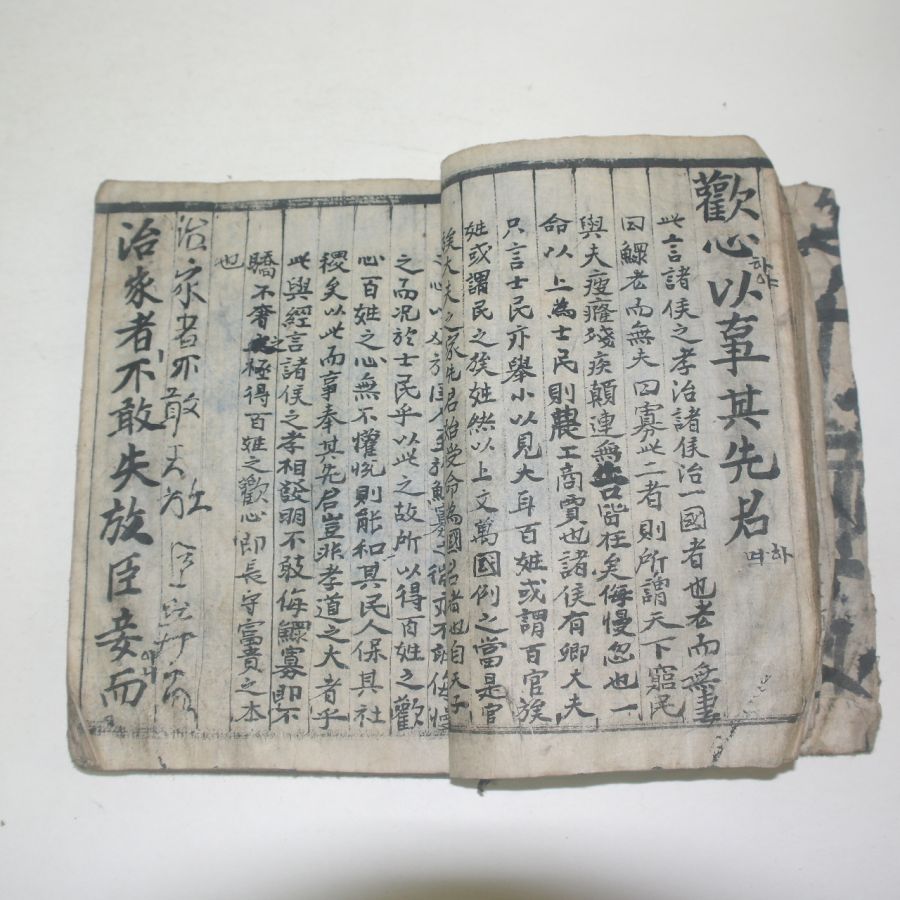 歡心以事其先君
하야
하며
此言諸侯之孝治諸侯治一國者也老而無妻
曰鰥老而無夫曰寡此二者則所謂天下窮民
與夫疲癃殘疾顛連無告皆在矣侮慢忽也一
命以上爲士民則農工商賈也諸侯有卿大夫
只言士民亦擧小以見大耳百姓或謂百官族
姓或謂民之族姓然以上文萬國例之當是官
侯大夫之家先君始受命爲國君者也自天子
之而况於士民乎以此之故所以得百姓之歡
心百姓之心無不懽悅則能和其民人保其社
稷矣以此而事奉其先君豈非孝道之大者乎
此與經言諸侯之孝相發明不敢侮鰥寡卽不
驕不奢之極得百姓之歡心卽長守富貴之本
也
治家者不敢失
治家者不敢失放臣妾而